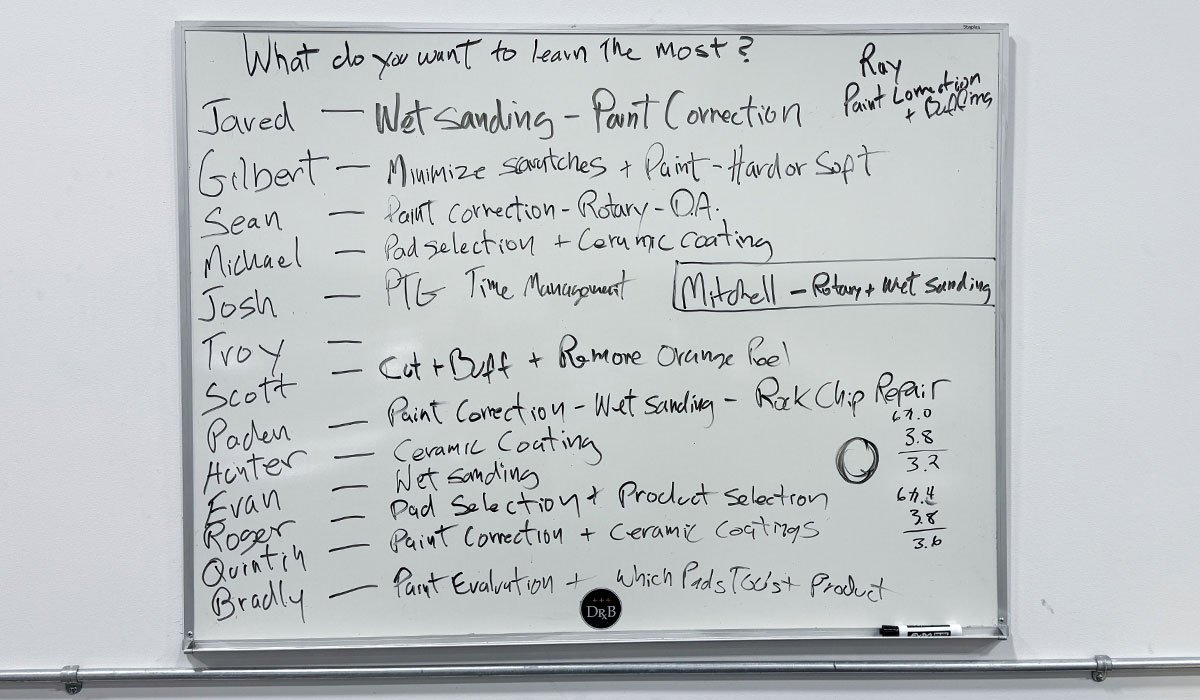 Staples
What do you want to learn The most?
Ray
Paint Correction
+ Buffing
Jared — Wet Sanding - Paint Correction
Gilbert — Minimize scratches + Paint - Hard or Soft
Sean — Paint correction - Rotary - D.A.
Michael — Pad selection + Ceramic coating
Josh — PTG Time Management
Mitchell - Rotary + Wet Sanding
Troy —
Scott — Cut + Buff + Remove Orange Peel
Paden — Paint Correction - Wet Sanding - Rock Chip Repair
Hunter — Ceramic Coating
Evan — Wet Sanding
Roger — Pad Selection + Product Selection
Quintin — Paint Correction + Ceramic Coatings
Bradly — Paint Evaluation + Which Pads Tools + Product
3.8
3.2
3.8
3.6
DRB